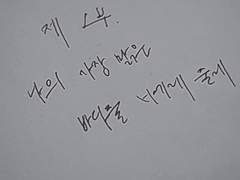 제 1부.
나의 가장 맑은
바다를 너에게 줄게